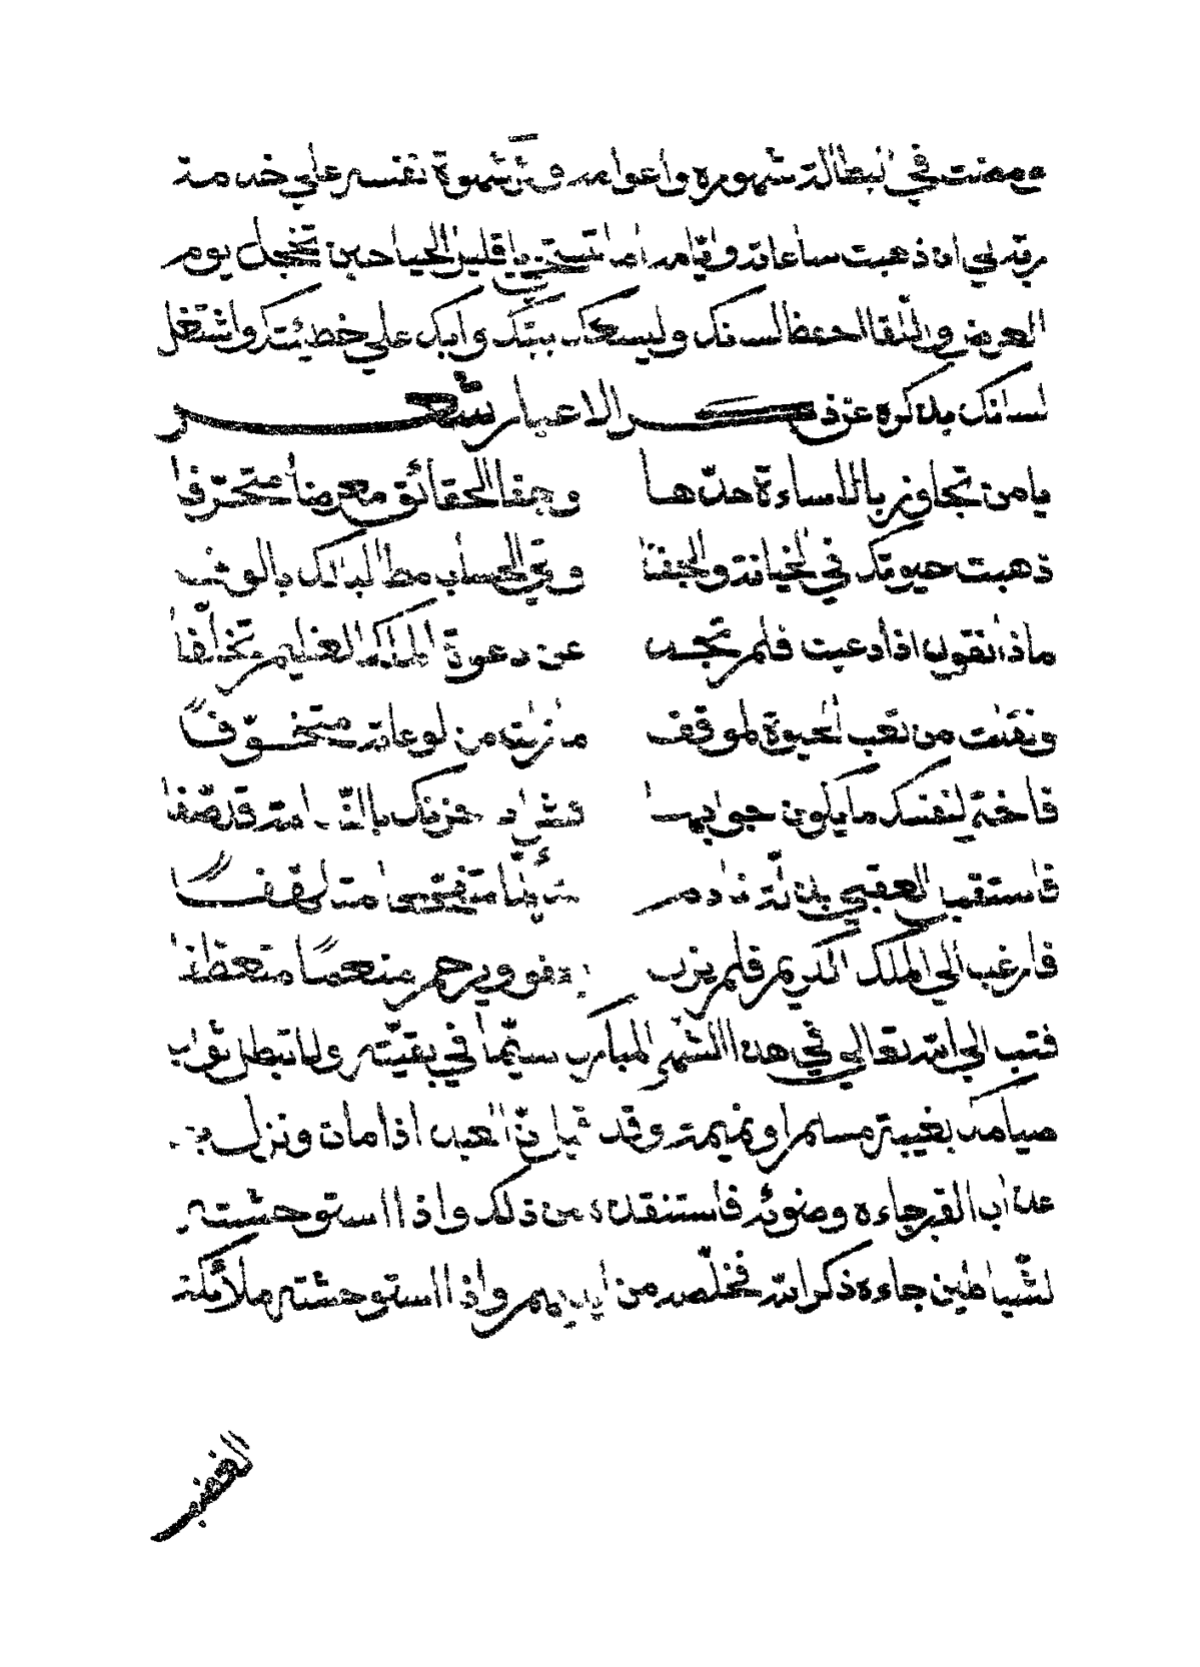 مضت في البطالة شهوره واعوامه وقدّم شهوة نفسه علي خدمة
ربه بي اه ذهبت ساعاته وايّامه اما تستحي يا قليل الحيا حين تخجل يوم
العرض واللّقا احفظ لسانك وليسعك بيتك وابك علي خطيئتك واشتغل
لسانك بذكره عن ذكر الاغيار شعر
يا من تجاوز بالاساءة حدّها وجفا الحقائق معرضا متحرّفا
ذهبت حيوتك في الخيانة والجفا وبقي الحساب مطالبا لك بالوفا
ماذا تقول اذا دعيت فلم تجد عن دعوة الملك العظيم تخلّفا
ونقلت من تعب الحيوة لموقف ما زلت من لوعاته متخوّفاً
لنفسك ما يكون جوابها حزنك بالنّدامة قد صفا
فاستقبل العقبي بذلّة نادم
فارغب الي الملك الكريم فلم يزل يعفو ويرحم منعماً متعطّفا
فتب الي الله تعالي في هذا الشهر المبارك سيّما في بقيّته ولا تبطل ثواب
صيامك بغيبة مسلم او نميمة وقد قيل انّ العبد اذا مات ونزل به
عذاب القبر جاءه وضوئه فاستنقذه من ذلك واذا استوحشته
لشّياطين جاءه ذكر الله فخلّصه من ايديهم واذا استوحشته ملائكة